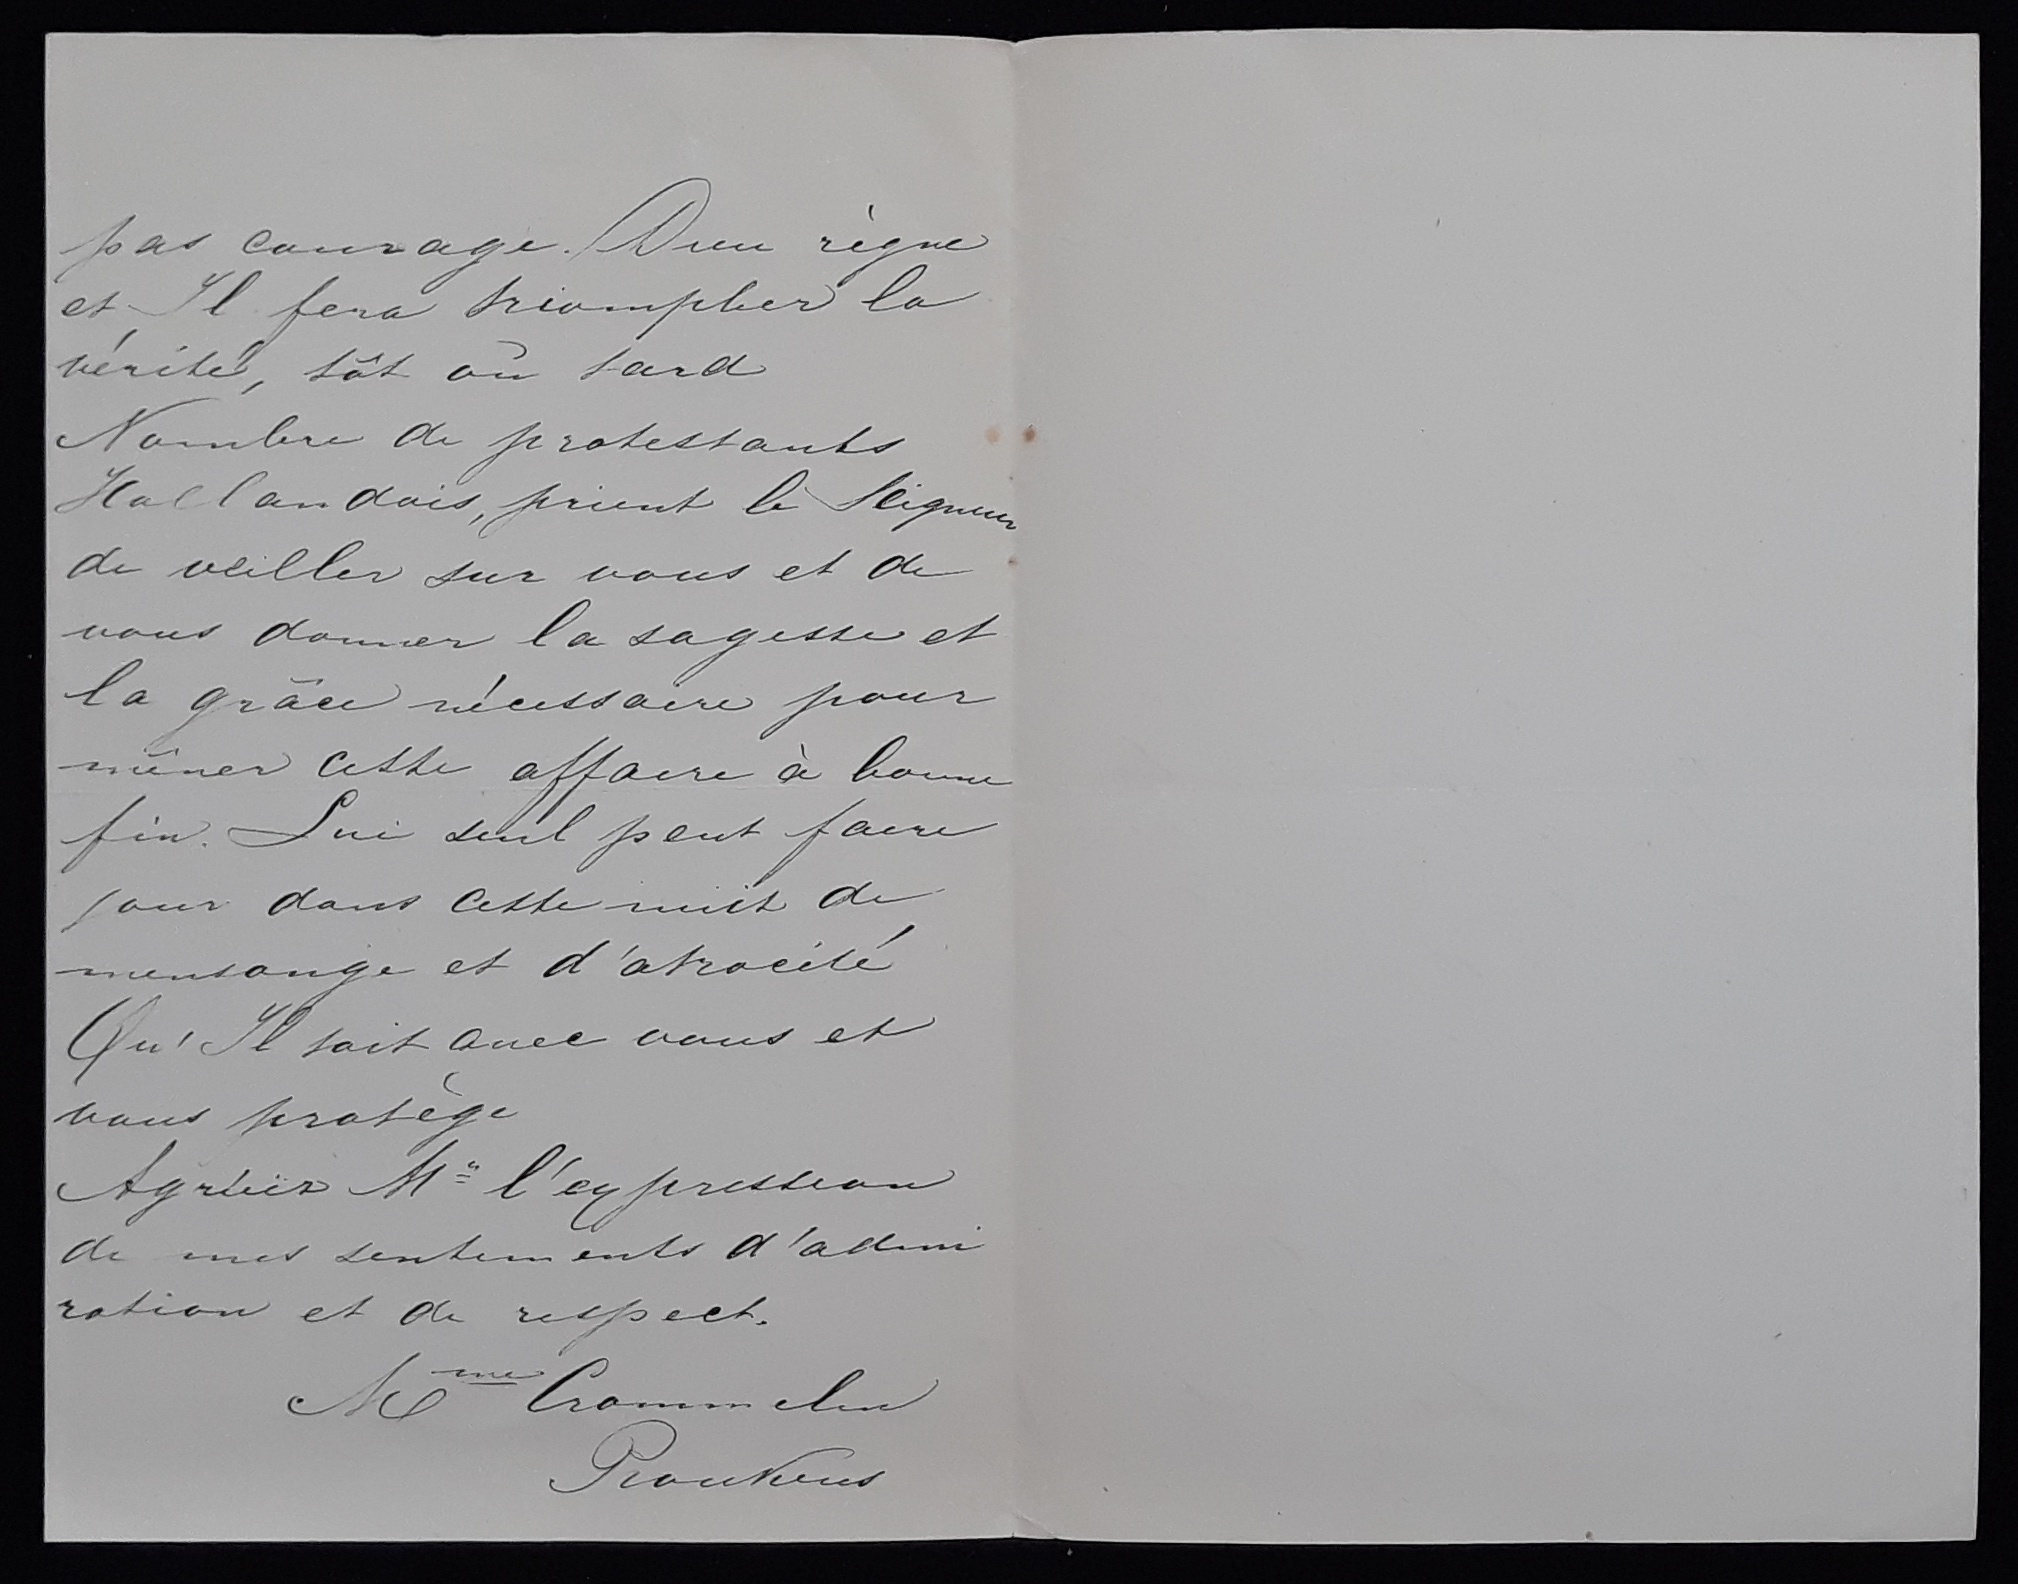 pas courage. Dieu règne
et Il fera triompher la
vérité, tôt où tard
Nombre de protestants
Hollandais, prient le Seigneur
de veiller sur vous et de
vous donner la sagesse et
la grâce nécessaire pour
mêner cette affaire à bonne
fin. Lui seul peut faire
jour dans cette nuit de
mensonge et d'atrocité
Qu'Il soit avec vous et
vous protège
Agréez Mr l'expression
de mes sentiments d'admi
ration et de respect.
Mme Crommelin